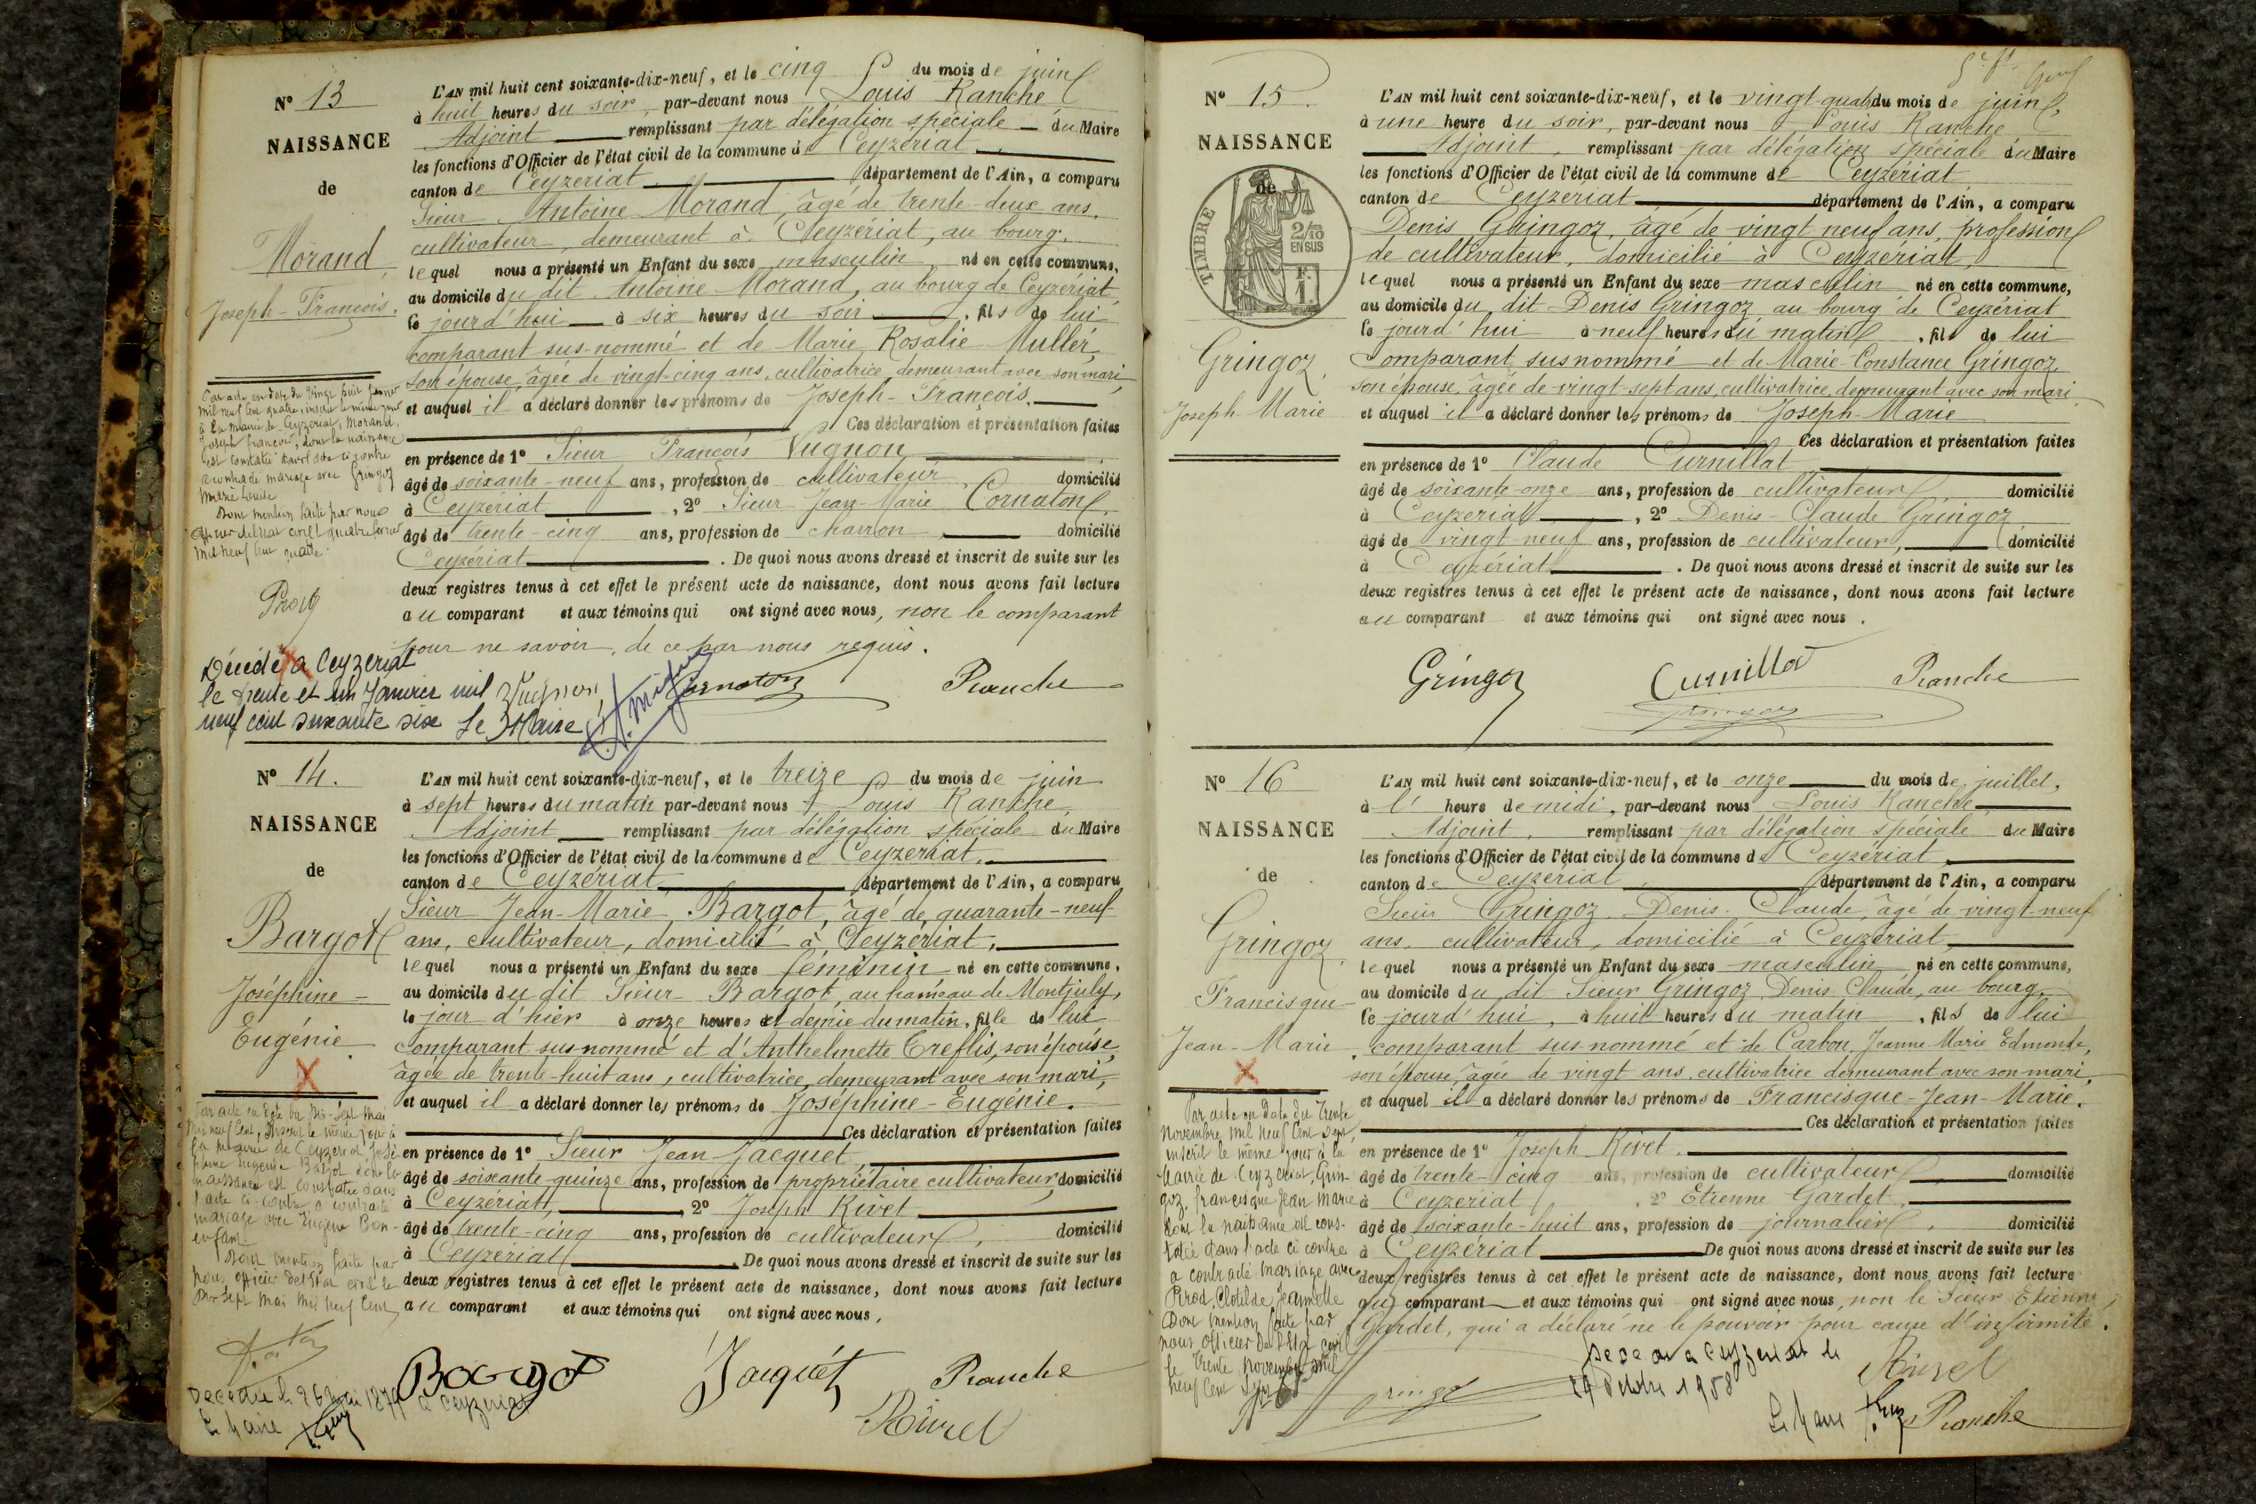 Nº 13
NAISSANCE
de
Morand
Joseph-François.
L'AN mil huit cent soixante-dix-neuf, et le cinq du mois de juin
à huit heures du soir, par-devant nous Louis Ranche
Adjoint remplissant par délégation spéciale du Maire
les fonctions d'Officier de l'état civil de la commune de Ceyzériat
canton de Ceyzériat département de l'Ain, a comparu
Sieur Antoine Morand, âgé de trente-deux ans,
cultivateur, demeurant à Ceyzériat, au bourg,
lequel nous a présenté un Enfant du sexe masculin né en cette commune,
au domicile du dit Antoine Morand, au bourg de Ceyzériat
le jourd'hui à six heures du soir, fils de lui
comparant sus-nommé et de Marie Rosalie Muller,
son épouse, âgée de vingt-cinq ans, cultivatrice, demeurant avec son mari,
et auquel il a déclaré donner les prénoms de Joseph-François.
Ces déclaration et présentation faites
en présence de 1º Sieur François Vugnon
âgé de soixante-neuf ans, profession de cultivateur, domicilié
à Ceyzériat, 2º Sieur Jean-Marie Cornaton,
âgé de trente-cinq ans, profession de charron domicilié
Ceyzériat. De quoi nous avons dressé et inscrit de suite sur les
deux registres tenus à cet effet le présent acte de naissance, dont nous avons fait lecture
au comparant et aux témoins qui ont signé avec nous, non le comparant
pour ne savoir, de ce par nous requis.
Vugnon Cornaton Ranche
Par acte en date du vingt quatre février
mil neuf cent quatre, inscrit le même jour
à la Mairie de Ceyzériat, Morand,
Joseph François, dont la naissance
est constatée dans l'acte ci-contre
a contracté mariage avec Gringoz
Marie Louise
Dont mention faite par nous
officier de l'état civil vingt quatre février
mil neuf cent quatre.
Décédé à Ceyzériat
le trente et un Janvier mil
neuf cent soixante six Le Maire
Nº 14.
NAISSANCE
de
Bargot
Joséphine-
Eugénie
L'AN mil huit cent soixante-dix-neuf, et le treize du mois de juin
à sept heures du matin par-devant nous Louis Ranche
Adjoint remplissant par délégation spéciale du Maire
les fonctions d'Officier de l'état civil de la commune de Ceyzériat,
canton de Ceyzériat département de l'Ain, a comparu
Sieur Jean-Marie Bargot, âgé de quarante-neuf
ans, cultivateur, domicilié à Ceyzériat,
lequel nous a présenté un Enfant du sexe féminin né en cette commune,
au domicile du dit Sieur Bargot, au hameau de Montjuly,
le jour d'hier à onze heures et demie du matin, fille de lui
comparant sus-nommé et d'Anthelmette Treflis, son épouse,
âgée de trente-huit ans, cultivatrice, demeurant avec son mari,
et auquel il a déclaré donner les prénoms de Joséphine-Eugénie.
Ces déclaration et présentation faites
en présence de 1º Sieur Jean Jacquet
âgé de soixante-quinze ans, profession de propriétaire cultivateur, domicilié
à Ceyzériat, 2º Joseph Rivet
âgé de trente-cinq ans, profession de cultivateur, domicilié
à Ceyzériat. De quoi nous avons dressé et inscrit de suite sur les
deux registres tenus à cet effet le présent acte de naissance, dont nous avons fait lecture
au comparant et aux témoins qui ont signé avec nous,
Bargot Jacquet Ranche
Rivet
Par acte en date du dix-sept mai
mil neuf cent, inscrit le même jour à
la mairie de Ceyzériat, José-
phine Eugénie Bargot dont la
naissance est constatée dans
l'acte ci-contre a contracté
mariage avec Eugène Bon-
enfant
Dont mention faite par
nous, officier de l'état civil le
dix sept mai mil neuf cent
Le Maire
Nº 15.
NAISSANCE
de
TIMBRE
2/10
EN SUS
Gringoz
Joseph Marie
L'AN mil huit cent soixante-dix-neuf, et le vingt-quatre du mois de juin,
à une heure du soir, par-devant nous Louis Ranche
Adjoint, remplissant par délégation spéciale du Maire
les fonctions d'Officier de l'état civil de la commune de Ceyzériat
canton de Ceyzériat département de l'Ain, a comparu
Denis Gringoz, âgé de vingt neuf ans, profession
de cultivateur, domicilié à Ceyzériat,
lequel nous a présenté un Enfant du sexe masculin né en cette commune,
au domicile du dit Denis Gringoz au bourg de Ceyzériat
le jourd'hui à neuf heures du matin, fils de lui
comparant susnommé et de Marie-Constance Gringoz
son épouse, âgée de vingt-sept ans, cultivatrice, demeurant avec son mari
et auquel il a déclaré donner les prénoms de Joseph-Marie
Ces déclaration et présentation faites
en présence de 1º Claude Curnillat
âgé de soixante-onze ans, profession de cultivateur domicilié
à Ceyzériat, 2º Denis-Claude Gringoz
âgé de vingt-neuf ans, profession de cultivateur, domicilié
à Ceyzériat. De quoi nous avons dressé et inscrit de suite sur les
deux registres tenus à cet effet le présent acte de naissance, dont nous avons fait lecture
au comparant et aux témoins qui ont signé avec nous.
Gringoz Curnillat Ranche
Nº 16
NAISSANCE
de
Gringoz
Francisque-
Jean-Marie
L'AN mil huit cent soixante-dix-neuf, et le onze du mois de juillet,
à l'heure de midi, par-devant nous Louis Ranche
Adjoint, remplissant par délégation spéciale du Maire
les fonctions d'Officier de l'état civil de la commune de Ceyzériat
canton de Ceyzériat département de l'Ain, a comparu
Sieur Gringoz Denis-Claude, âgé de vingt-neuf
ans, cultivateur, domicilié à Ceyzériat
lequel nous a présenté un Enfant du sexe masculin né en cette commune,
au domicile du dit Sieur Gringoz Denis Claude, au bourg,
le jourd'hui, à huit heures du matin, fils de lui
comparant sus nommé et de Carbon Jeanne Marie Edmonde,
son épouse, âgée de vingt ans, cultivatrice demeurant avec son mari,
et auquel il a déclaré donner les prénoms de Francisque-Jean-Marie.
Ces déclaration et présentation faites
en présence de 1º Joseph Rivet
âgé de trente-cinq ans, profession de cultivateur, domicilié
à Ceyzériat, 2º Etienne Gardet
âgé de soixante-huit ans, profession de journalier, domicilié
à Ceyzériat De quoi nous avons dressé et inscrit de suite sur les
deux registres tenus à cet effet le présent acte de naissance, dont nous avons fait lecture
au comparant et aux témoins qui ont signé avec nous, non le Sieur Etienne
Gardet, qui a déclaré ne le pouvoir pour cause d'infirmité.
Par acte en date du trente
novembre mil neuf cent sept,
inscrit le même jour à la
Mairie de Ceyzériat, Grin-
goz, francisque Jean Marie
dont la naissance est cons-
tatée dans l'acte ci contre
a contracté mariage avec
Prod, Clotilde Jeannette
Dont mention faite par
nous officier de l'état civil
le trente novembre mil
neuf cent sept
Décédé à Ceyzériat le
29 Octobre 1958
Rivet
Le Maire
Ranche